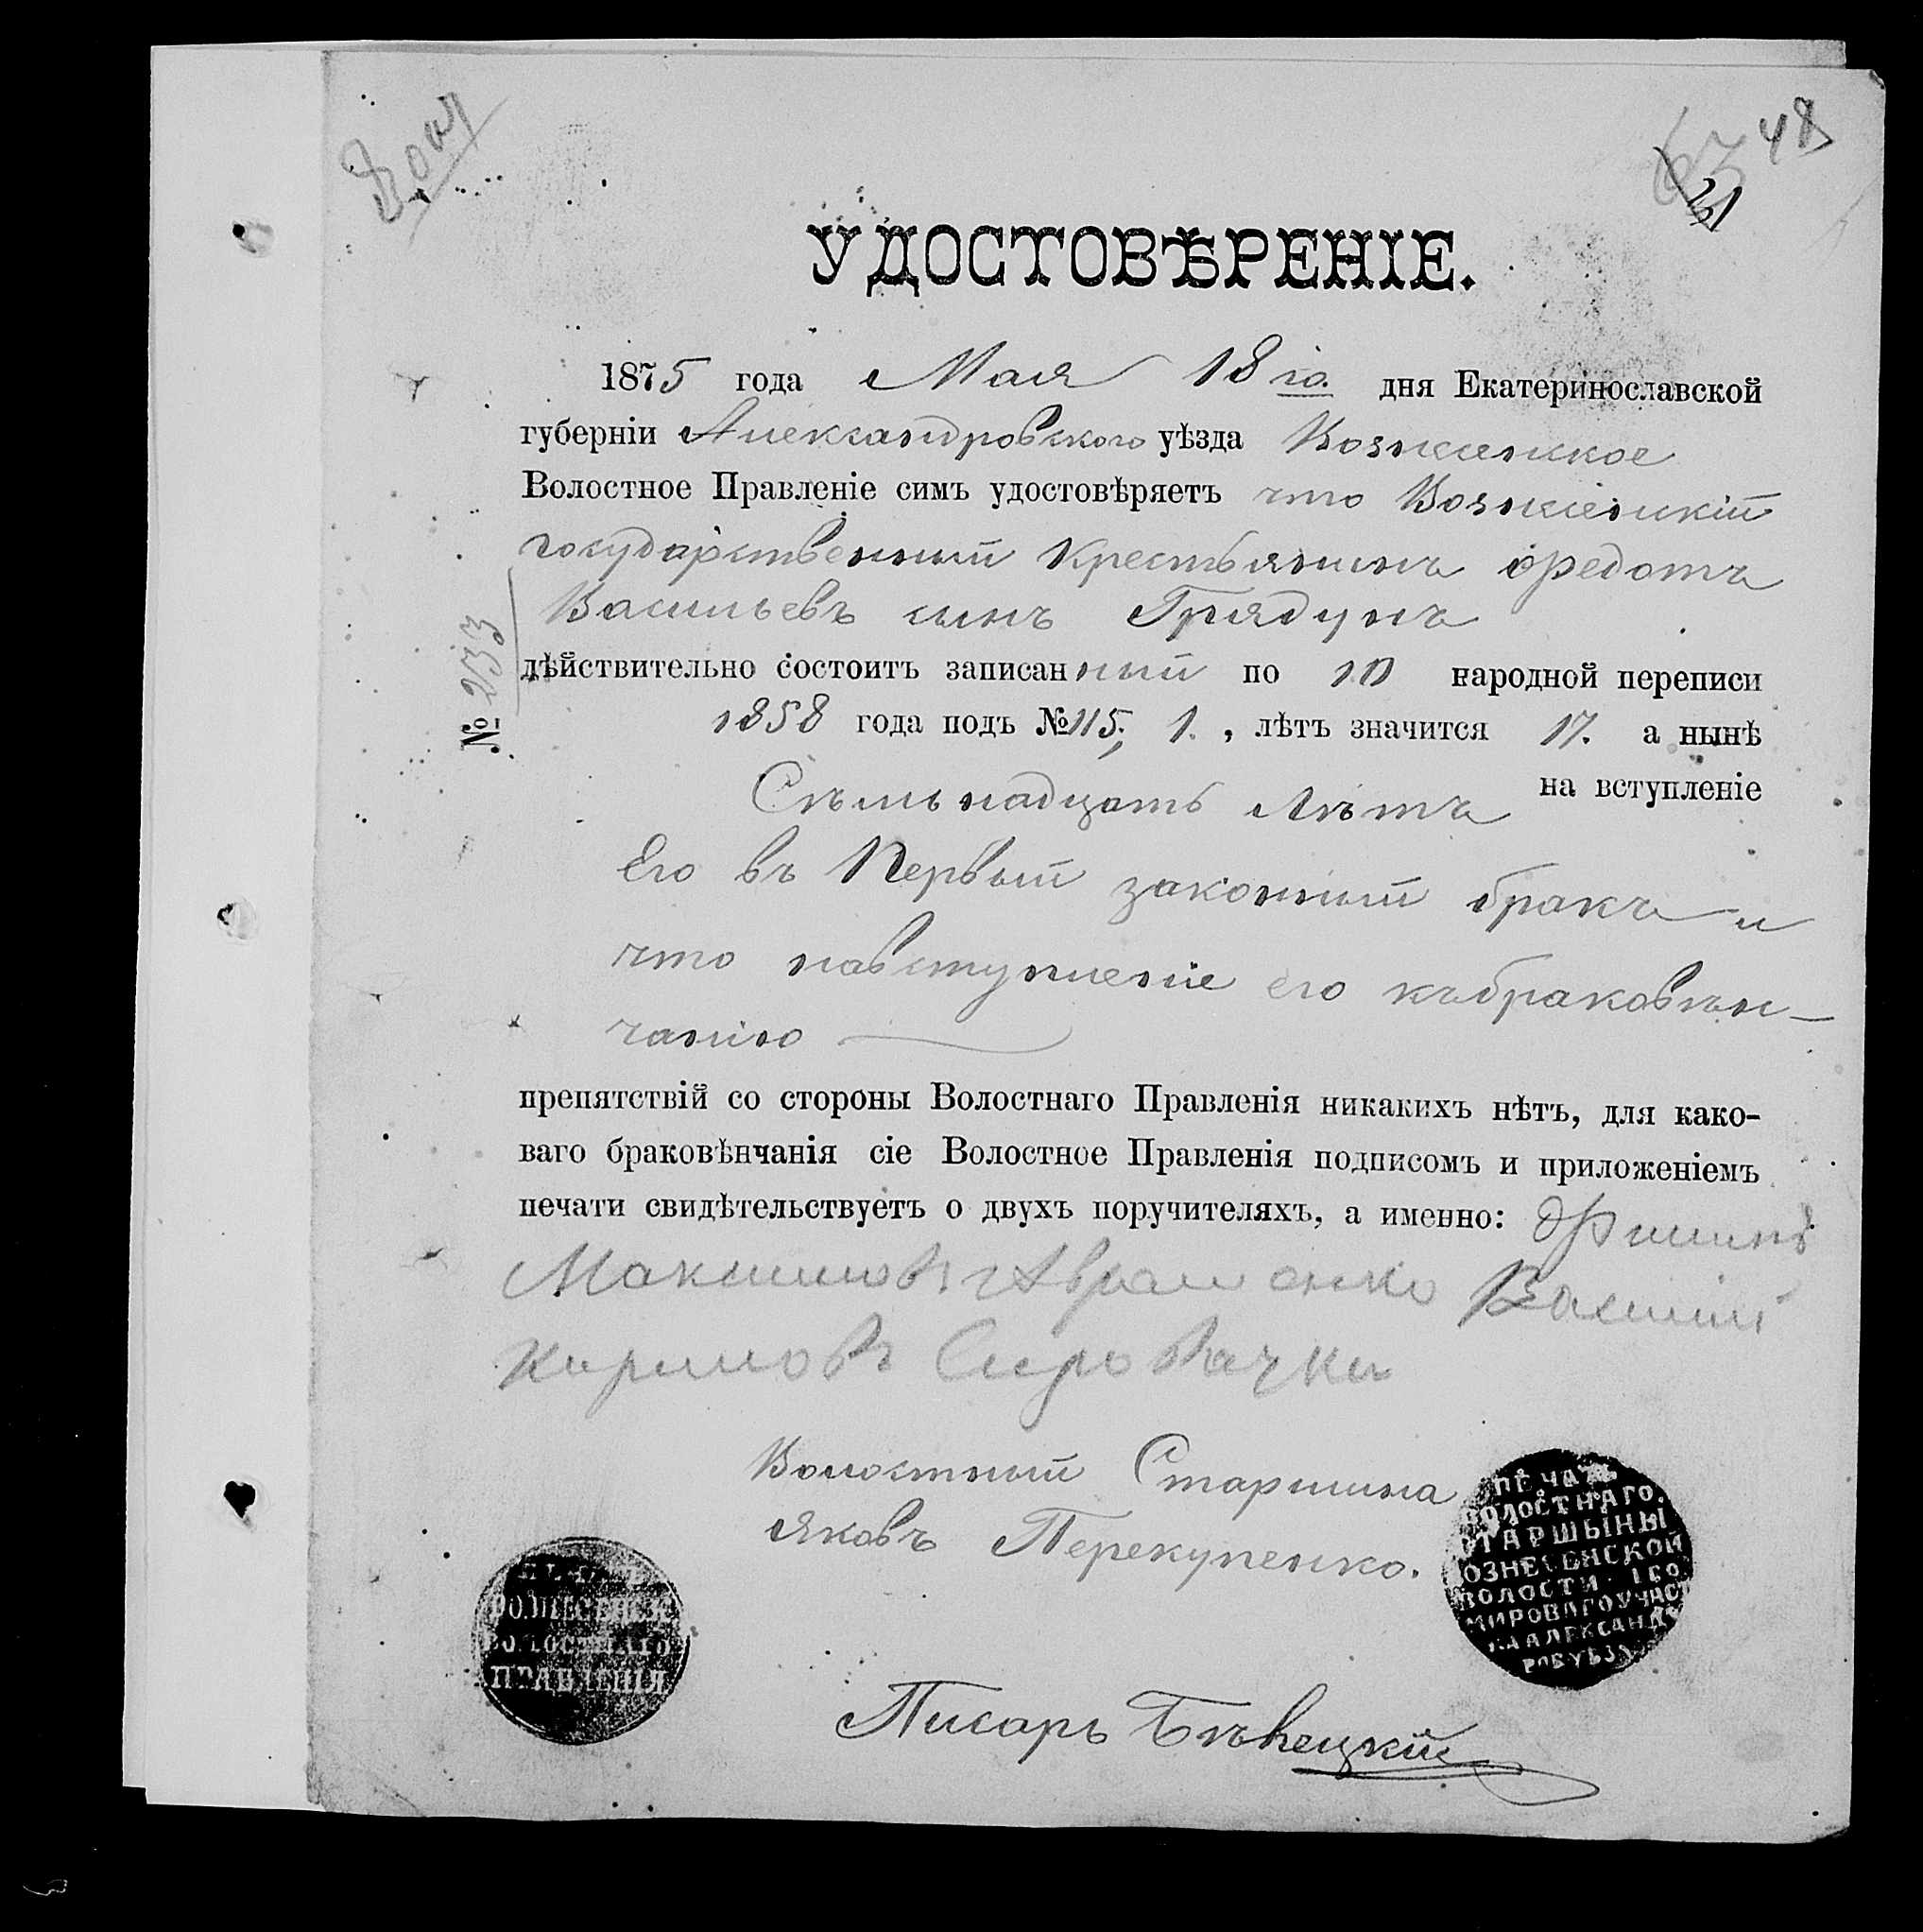 48
31
УДОСТОВѢРЕНІЕ.
1875 года Мая 18го. дня Екатеринославской
губерніи Александровского уѣзда Вознесенское
Волостное Правленіе симъ удостовѣряетъ что Вознесенскій
государственный крестьянинъ Федотъ
Васильевъ сынъ Грядунъ
№ 233
дѣйствительно состоитъ записанный по 10 народной переписи
1858 года подъ №115, 1. , лѣтъ значится 17. а нынѣ
Сѣмьнадцать лѣтъ на вступленіе
Его въ Первый законный бракъ и
что навступленіе его къбраковѣн-
чанію
препятствій со стороны Волостнаго Правленія никакихъ нѣтъ, для како-
ваго браковѣнчанія сіе Волостное Правленія подписомъ и приложеніемъ
печати свидѣтельствуетъ о двухъ поручителяхъ, а именно: Филипъ
Максимовъ Авраменко Василій
Кириловъ
Волостный Старшина
Яковъ Перекупенко.
ПЕЧАТЬ
ВОЛОСТНАГО
СТАРШЫНЫ
ВОЗНЕСЕНСКОЙ
ВОЛОСТИ 1го
МИРОВАГО УЧАСТ
КА АЛЕКСАНД
РОВ УѢЗ
ВОЛОСТНАГО
ПРАВЛЕНІЯ
Писарь Бѣнецкій